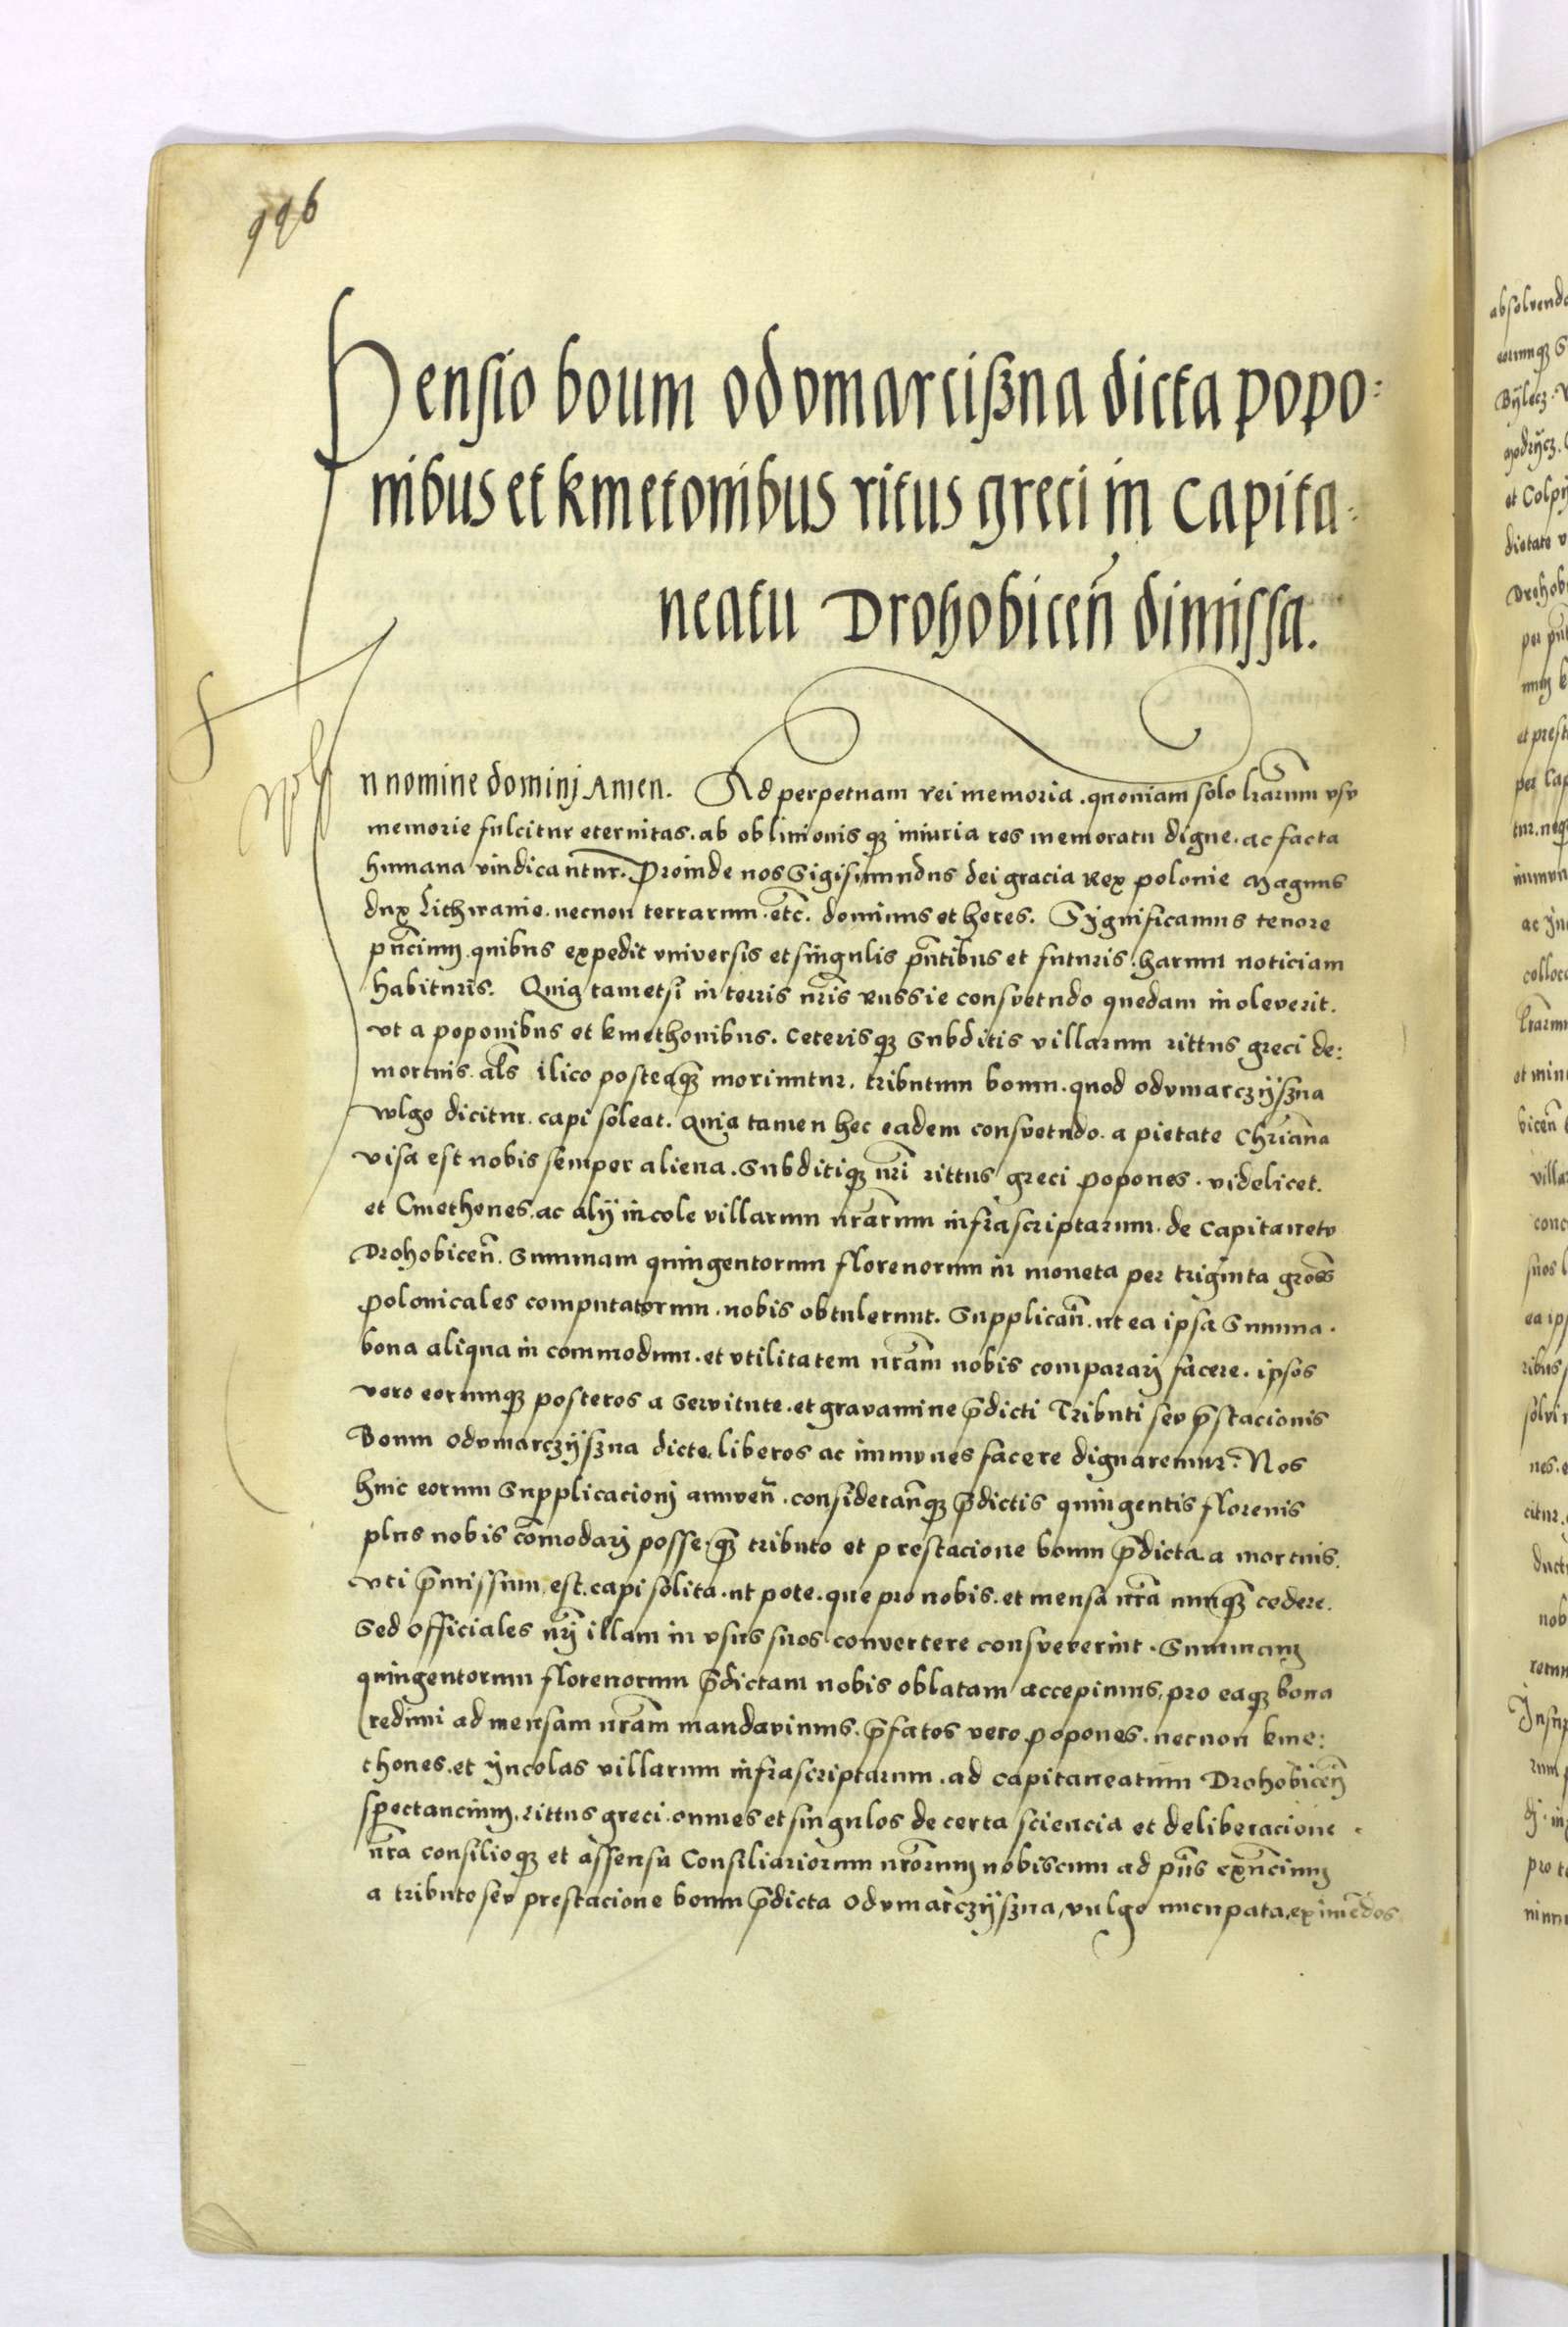 996
Pensio boum odvmarcißna dicta popo:
nibus et kmetonibus ritus greci in capita:
neatu Drohobiceñ dimissa.
In nomine dominj Amen. Ad perpetuam rei memoria. quoniam solo lr̃arum vsv
memorie fulcitur eternitas. ab oblivionis qȝ iniuria res memoratu digne. ac facta
humana vindicantur. Proinde nos Sigismundus dei gracia Rex polonie Magnus
dux Lithwanie. necnon terrarum. etc̃. dominus et heres. Significamus tenore
pñcium quibus expedit vniversis et singulis pñtibus et futuris harum noticiam
habituris. Quia tametsi in terris nr̃is russie consvetudo quedam inoleverit.
vt a poponibus et kmethonibus. ceterisqȝ subditis villarum rittus greci de:
mortuis. al̃s ilico posteaqȝ moriuntur. tributum boum. quod odvmarczÿszna
wlgo dicitur. capi soleat. quia tamen hec eadem consvetudo. a pietate chr̃iana
visa est nobis semper aliena. Subditiqȝ nr̃i rittus greci popones. videlicet.
et Cmethones. ac alÿ incole villarum nr̃arum infrascriptarum. de Capitanetv
Drohobiceñ. Summam quingentorum florenorum in moneta per triginta gross̃
polonicales computatorum. nobis obtulerunt. Supplicañ. ut ea ipsa Summa.
bona aliqua in commodum. et vtilitatem nr̃am nobis compararj facere. ipsos
vero eorumqȝ posteros a servitute. et gravamine p̃dicti Tributi sev p̃stacionis
Boum odvmarczÿszna dicte. liberos ac immvnes facere dignaremur. Nos
huic eorum Supplicacionj annveñ. considerañqȝ p̃dictis quingentis florenis
plus nobis com̃odarj posse. qȝ tributo et prestacione boum p̃dicta a mortuis.
vti p̃missum est. capi solita. ut pote. que pro nobis. et mensa nr̃a nunqȝ cedere.
Sed officiales nr̃j illam in vsus suos convertere consveverint. Summam
quingentorum florenorum p̃dictam nobis oblatam accepimus. pro eaqȝ bona
redimi ad mensam nr̃am mandavimus. p̃fatos vero popones. necnon kme:
thones. et ÿncolas villarum infrascriptarum. ad capitaneatum Drohobiceñ
spectancium. rittus greci. omnes et singulos de certa sciencia et deliberacione.
nr̃a consilioqȝ et assensu Consiliariorum nr̃orum nobiscum ad pñs exñcium
a tributo sev prestacione boum p̃dicta odvmarczÿszna, vulgo nucupata, eximẽdos